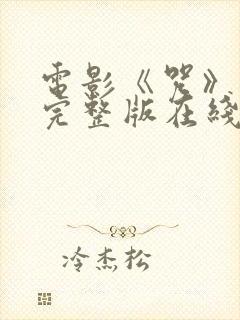 電影《咒》
完整版在綫
冷杰松